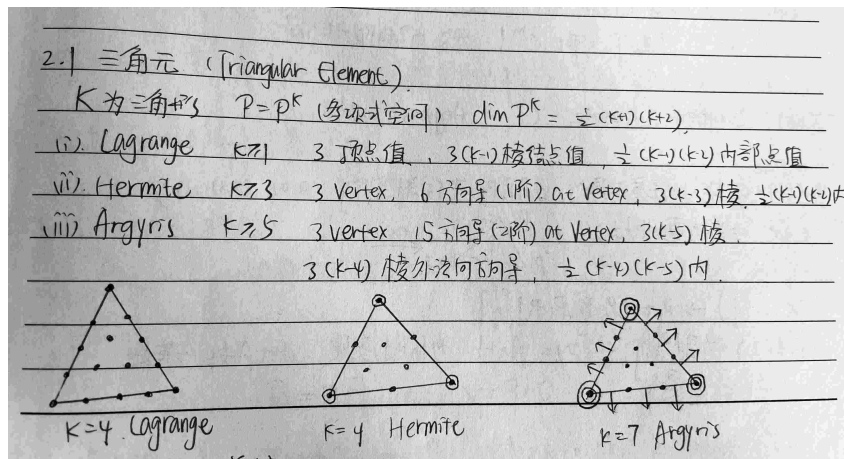 2.1 三角元 (Triangular Element).
K 为三角形 P=P^k (多项式空间) dim P^k = ½(k+1)(k+2).
(i). Lagrange k≥1 3 顶点值, 3(k-1)棱结点值 ½(k-1)(k-2)内部点值
(ii). Hermite k≥3 3 Vertex, 6 方向导(1阶) at Vertex, 3(k-3)棱. ½(k-1)(k-2)内
(iii) Argyris k≥5 3 vertex 15 方向导(2阶) at Vertex, 3(k-5)棱.
3(k-4)棱外法向方向导, ½(k-4)(k-5)内.
k=4. Lagrange k=4 Hermite k=7 Argyris